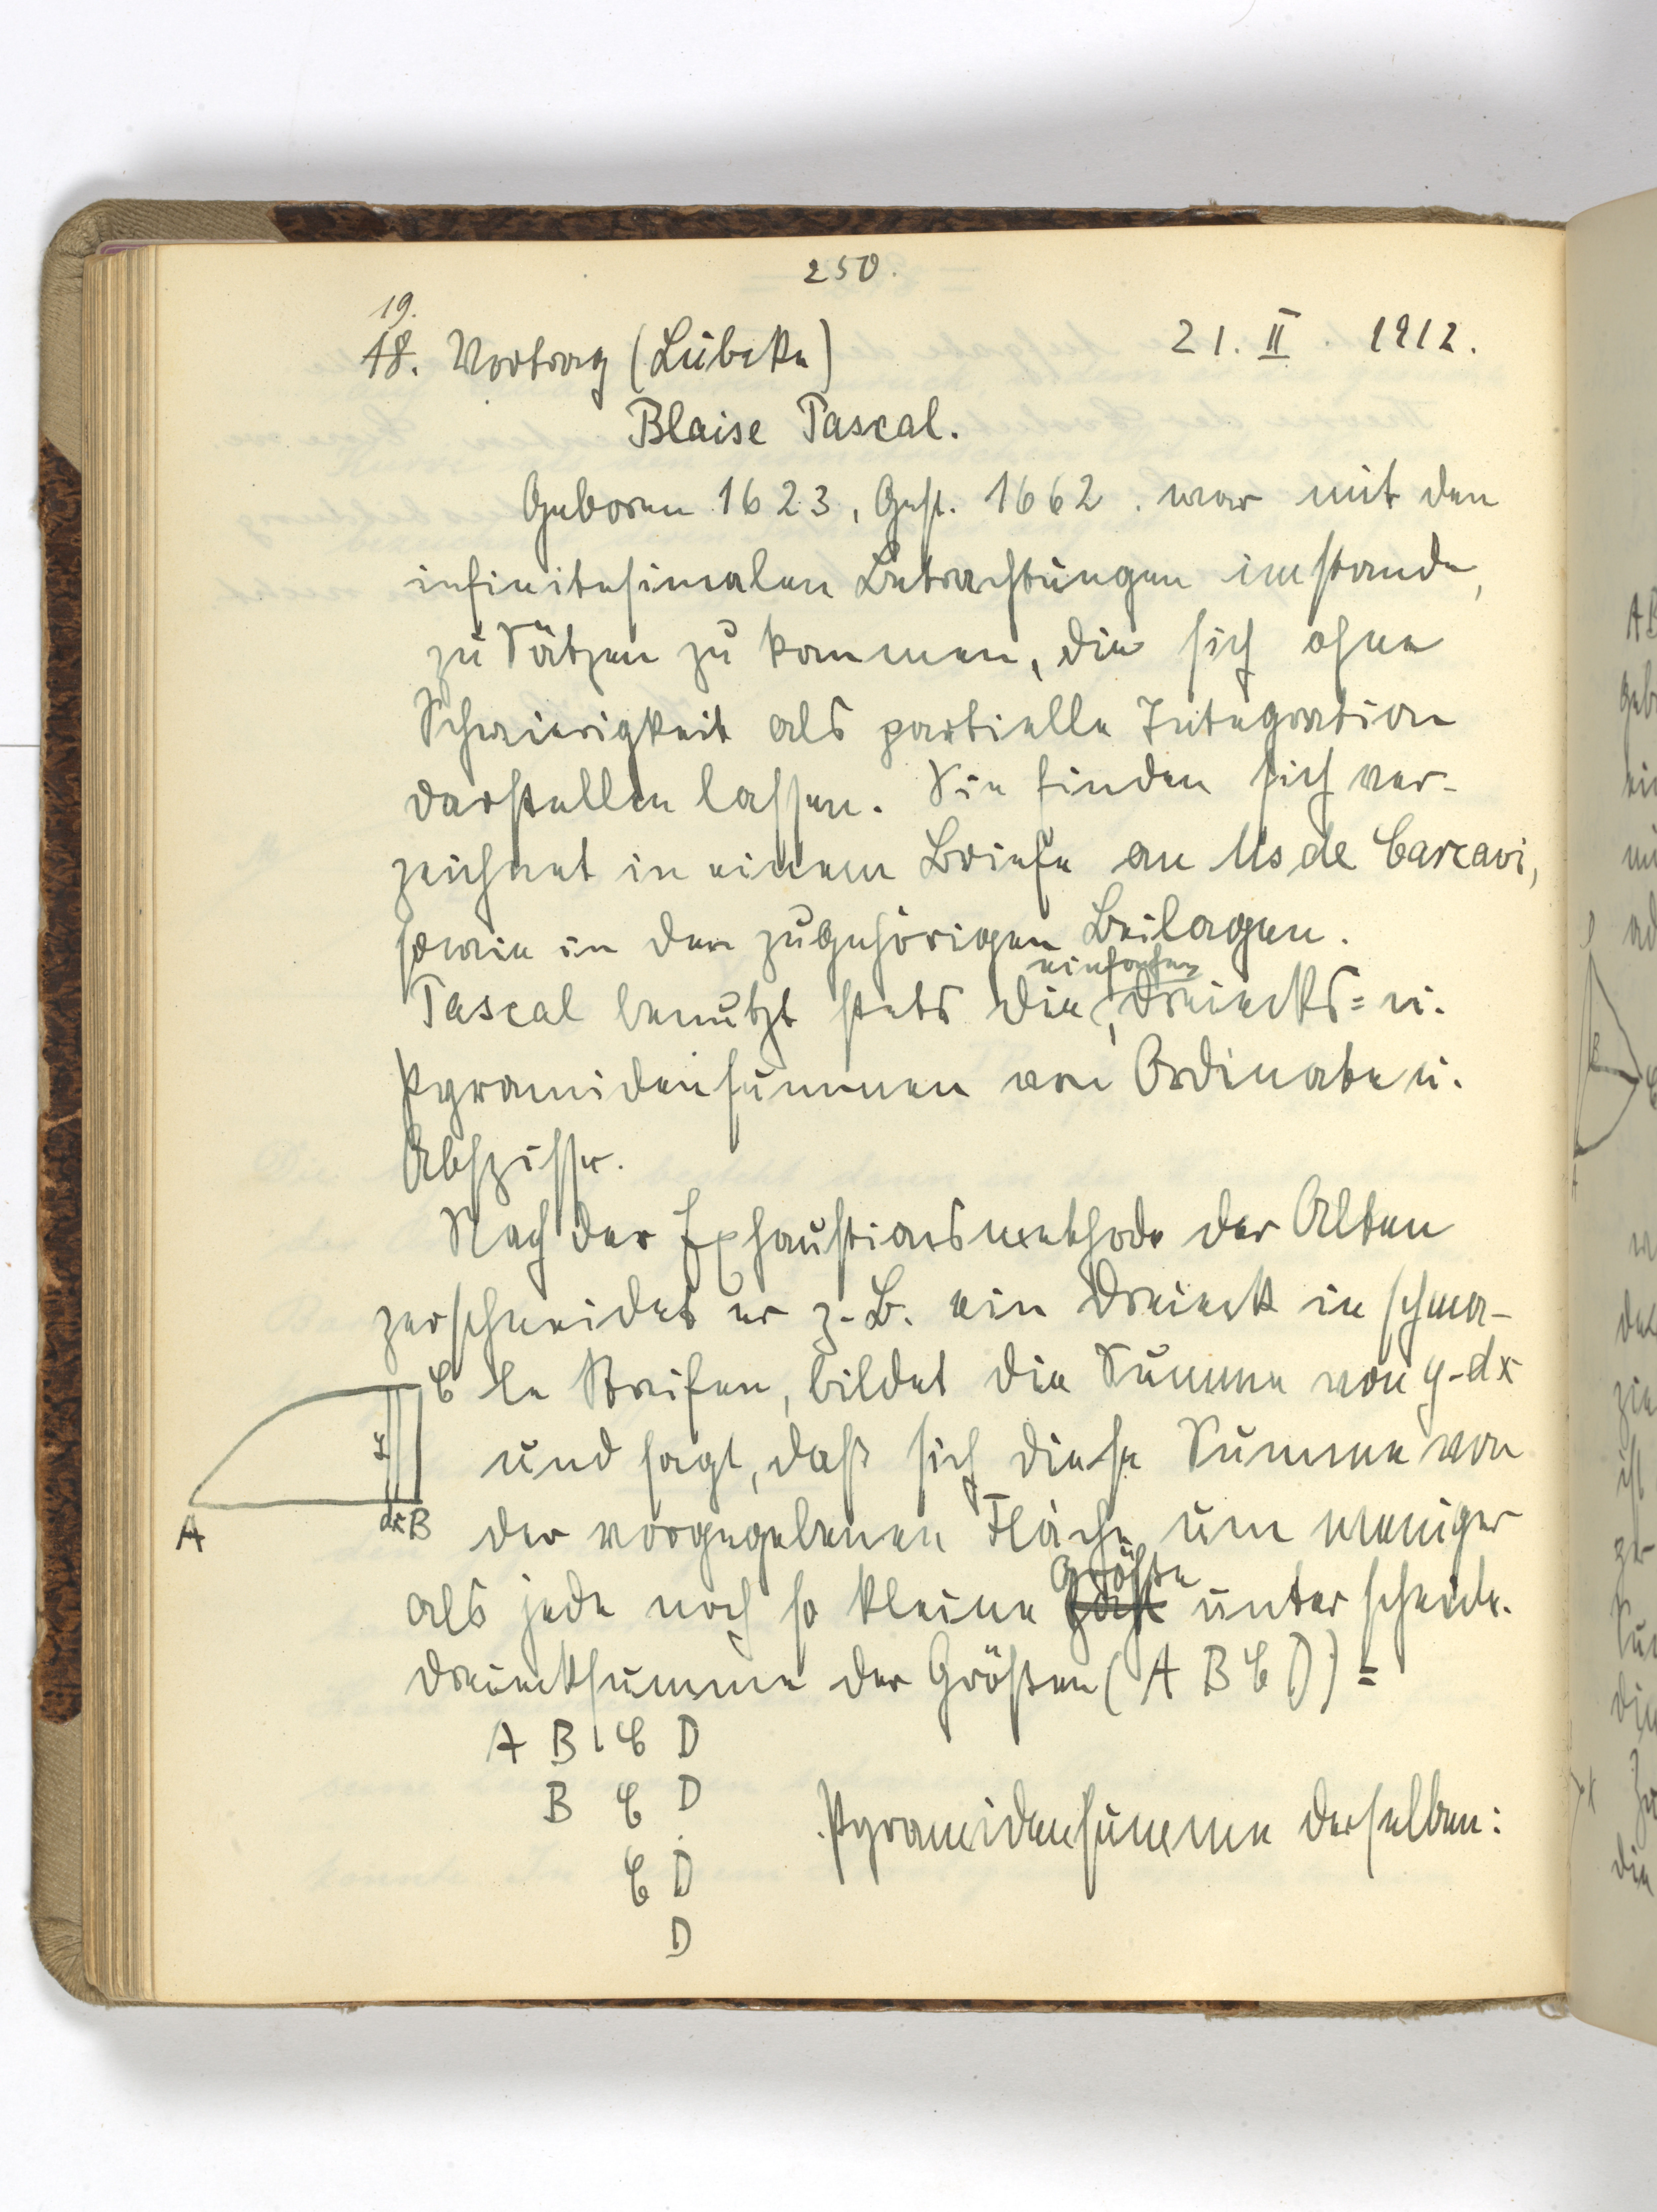 250.
19.
18. Vortrag (Lübcke) 21. II 1912.
Blaise Pascal.
Geboren 1623, Gest. 1662. war mit den
infinitesimalen Betrachtungen imstande,
zu Sätzen zu kommen, die sich ohne
Schwierigkeit als partielle Integration
darstellen lassen. Sie finden sich ver-
zeichnet in einem Briefe an Ms de Carcavi,
sowie in den zugehörigen Beilagen.
einfachen
Pascal benutzt stets die, Dreiecks= u.
Pyramidensummen von Ordinate u.
Abszisse.
Nach der Exhaustionsmethode der Alten
zerschneidet er z.B. ein Dreieck in schma-
C le Streifen, bildet die Summe von y-dx
und sagt, daß sich diese Summe von
der vorgegebenen Fläche um weniger
Größe
als jede noch so kleine unterscheide.
Dreiecksumme der Größen (A B C D) =
A B C D
B C D
C D
D
Pyramidensumme derselben:
y
A dx B